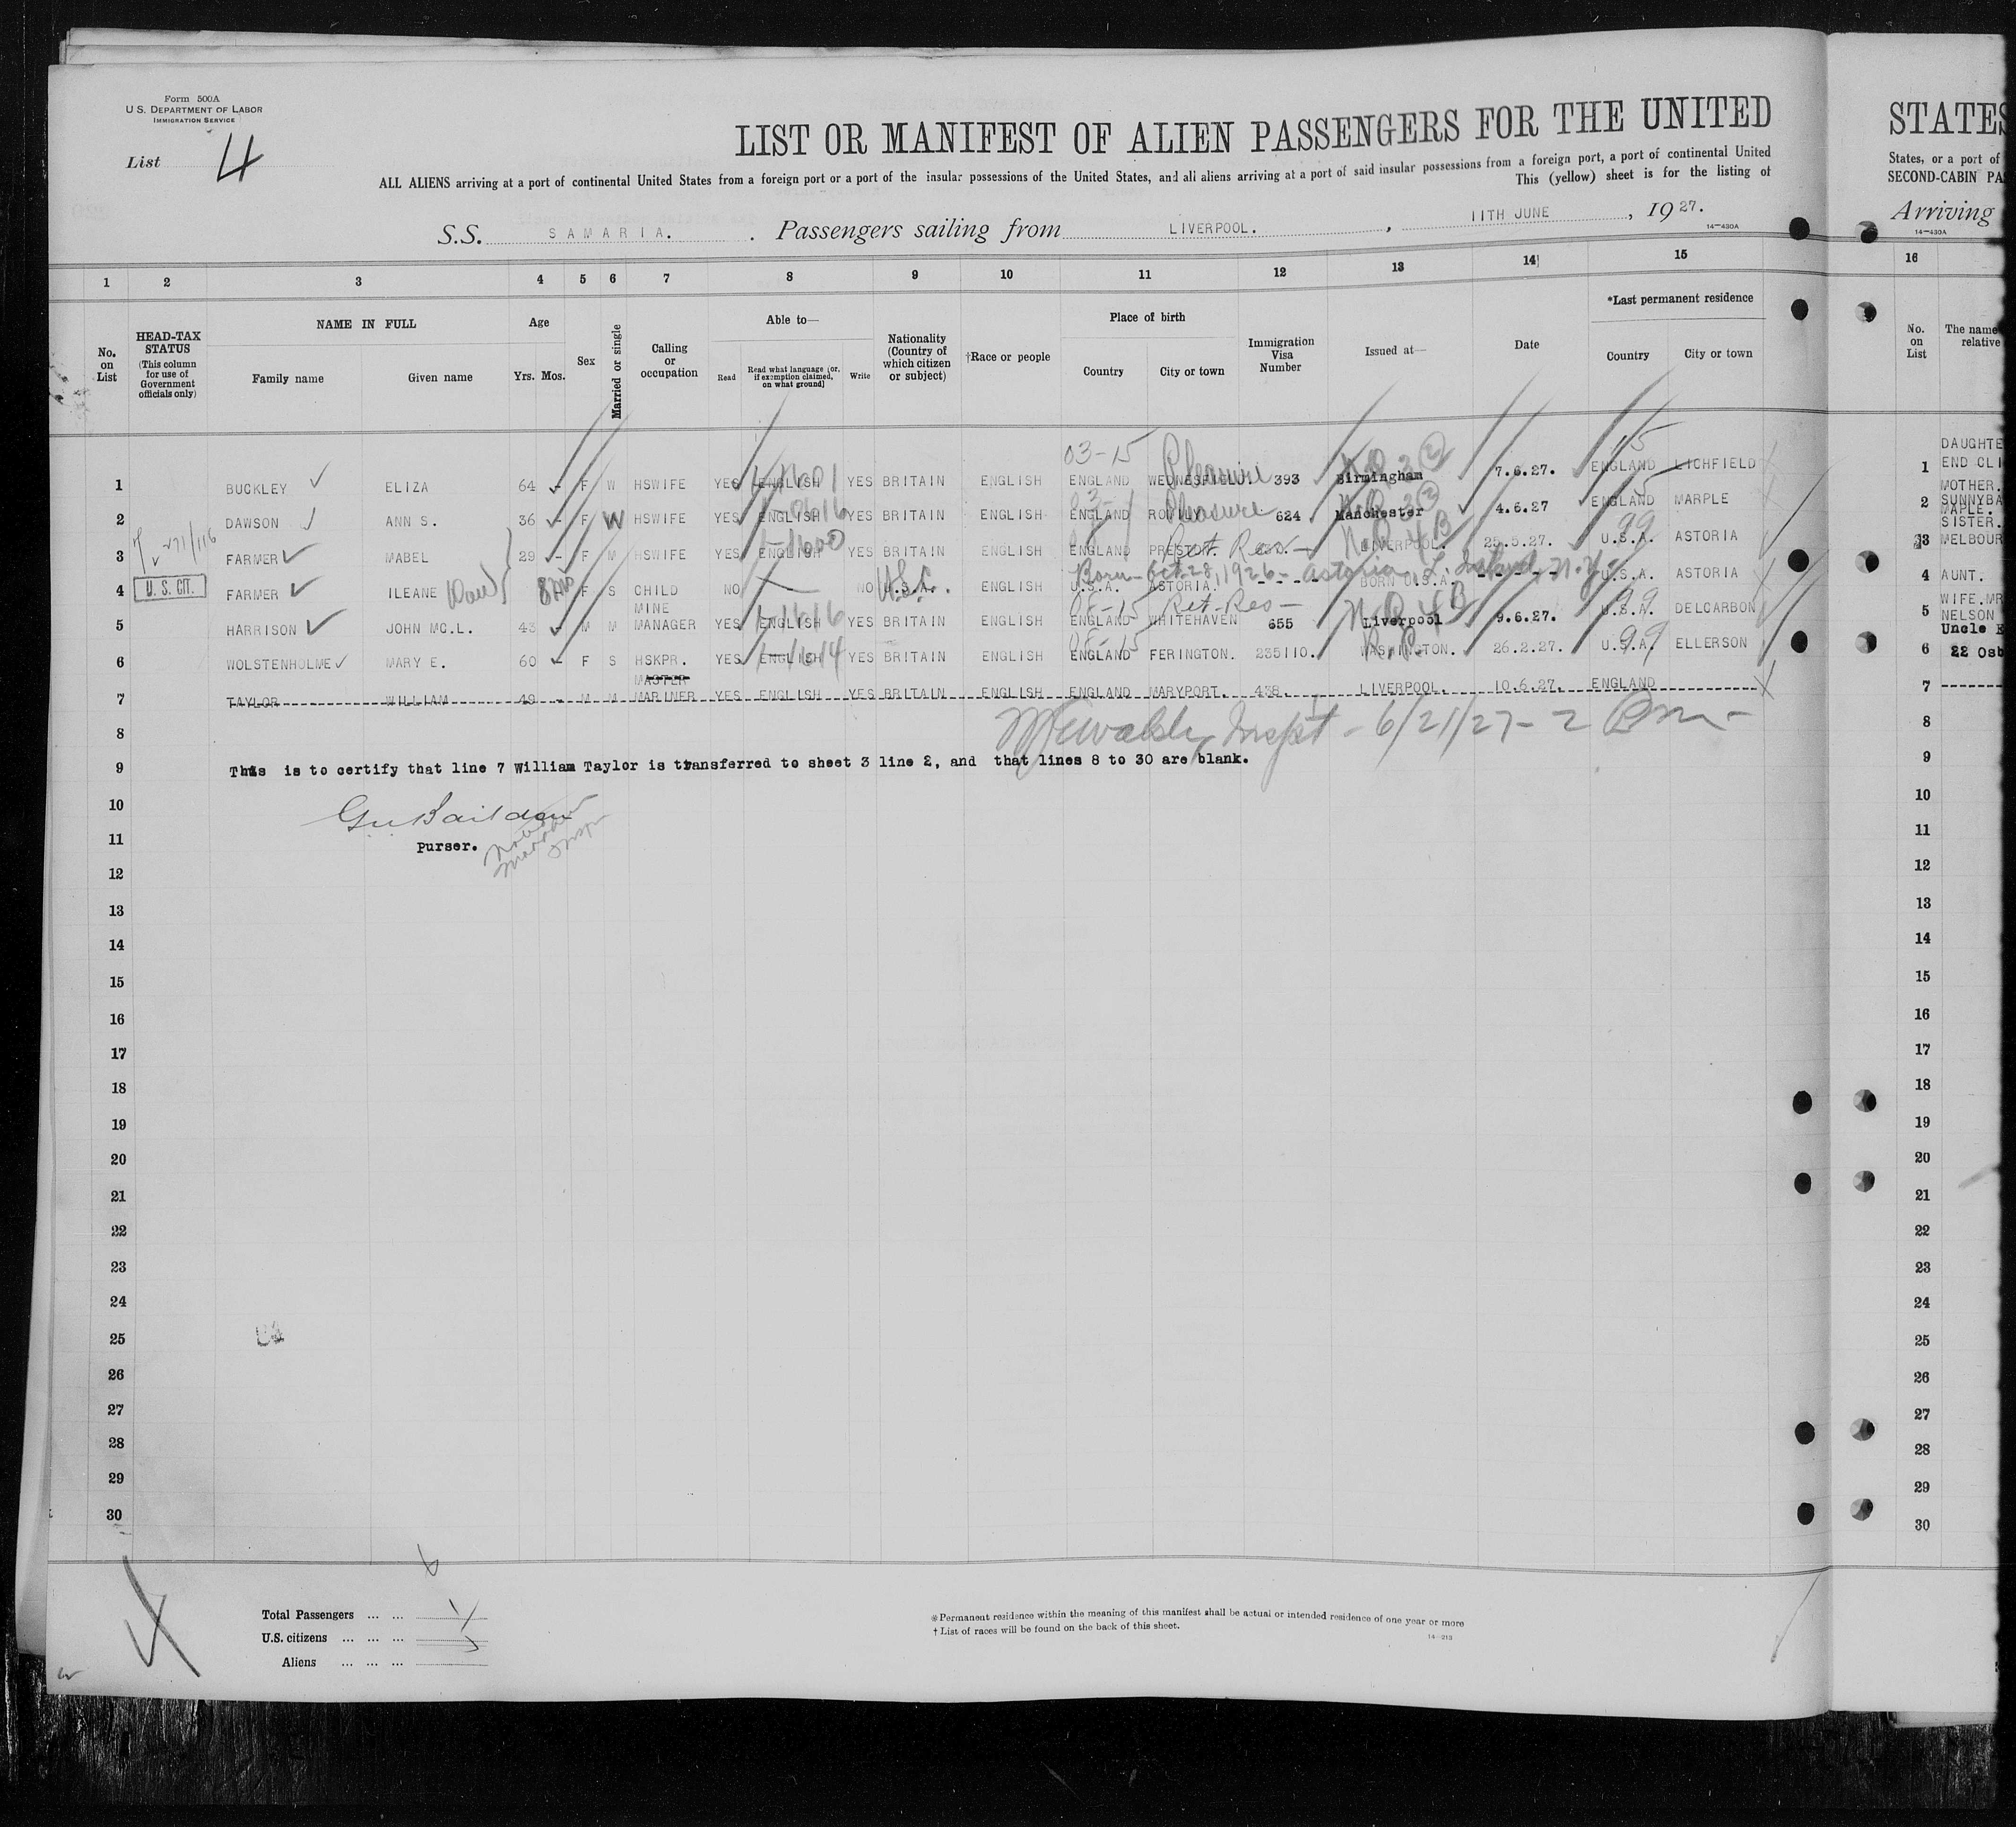 Form 500A
U.S. DEPARTMENT OF LABOR
IMMIGRATION SERVICE
List 4
LIST OR MANIFEST OF ALIEN PASSENGERS FOR THE UNITED
ALL ALIENS arriving at a port of continental United States from a foreign port or a port of the insular possessions of the United States, and all aliens arriving at a port of said insular possessions from a foreign port, a port of continental United
This (yellow) sheet is for the listing of
S.S. SAMARIA. Passengers sailing from LIVERPOOL. , 11TH JUNE , 1927.
14-430A
STATES
States, or a port of
SECOND-CABIN PA
Arriving
14-430A
1 2 3 4 5 6 7 8 9 10 11 12 13 14 15 16
No. on List
HEAD-TAX STATUS (This column for use of Government officials only)
NAME IN FULL
Family name Given name
Age
Yrs. Mos.
Sex
Married or single
Calling or occupation
Able to—
Read
Read what language [or, if exemption claimed, on what ground]
Write
Nationality (Country of which citizen or subject)
†Race or people
Place of birth
Country City or town
Immigration Visa Number
Issued at—
Date
*Last permanent residence
Country City or town
No. on List
The name
relative
03-15 Pleasure 15
1 BUCKLEY ELIZA 64 - F W HSWIFE YES ENGLISH YES BRITAIN ENGLISH ENGLAND WEDNESFIELD 393 Birmingham 7.6.27. ENGLAND LICHFIELD
Pleasure
2 DAWSON ANN S. 36 - F W HSWIFE YES ENGLISH YES BRITAIN ENGLISH ENGLAND 624 Manchester 4.6.27 ENGLAND MARPLE
Ret. Res - 99
3 FARMER MABEL 29 - F M HSWIFE YES ENGLISH YES BRITAIN ENGLISH ENGLAND PRESTON. LIVERPOOL. 25.5.27. U.S.A. ASTORIA
Born - Oct. 28, 1926 - Astoria, L. Island, N.Y.
U. S. CIT.
4 FARMER ILEANE (Dau) F S CHILD NO NO U.S.A. ENGLISH U.S.A. ASTORIA. - - - - BORN U.S.A. - - - - U.S.A. ASTORIA
08-15 Ret-Res - NR 4B 99
5 HARRISON JOHN MC.L. 43 - M M MINE MANAGER YES ENGLISH YES BRITAIN ENGLISH ENGLAND WHITEHAVEN 655 Liverpool 9.6.27. U.S.A. DELCARBON
08-15 99
6 WOLSTENHOLME MARY E. 60 - F S HSKPR. YES ENGLISH YES BRITAIN ENGLISH ENGLAND FERINGTON. 235110. WASHINGTON. 26.2.27. U.S.A. ELLERSON
7 TAYLOR WILLIAM 49 - M M MASTER MARINER YES ENGLISH YES BRITAIN ENGLISH ENGLAND MARYPORT. 438. LIVERPOOL. 10.6.27. ENGLAND
8 Inspt - 6/21/27 - 2 Pm -
9 This is to certify that line 7 William Taylor is transferred to sheet 3 line 2, and that lines 8 to 30 are blank.
10
11 Purser.
12
13
14
15
16
17
18
19
20
21
22
23
24
25
26
27
28
29
30
DAUGHTE
1 END CLI
MOTHER.
2 SUNNYBA
MAPLE.
SISTER.
3 MELBOUR
4 AUNT.
WIFE.MR
5 NELSON
Uncle
6 22 Osb
7
8
9
10
11
12
13
14
15
16
17
18
19
20
21
22
23
24
25
26
27
28
29
30
Total Passengers ... ...
U.S. citizens ... ... ...
Aliens ... ... ...
*Permanent residence within the meaning of this manifest shall be actual or intended residence of one year or more
†List of races will be found on the back of this sheet.
14-213